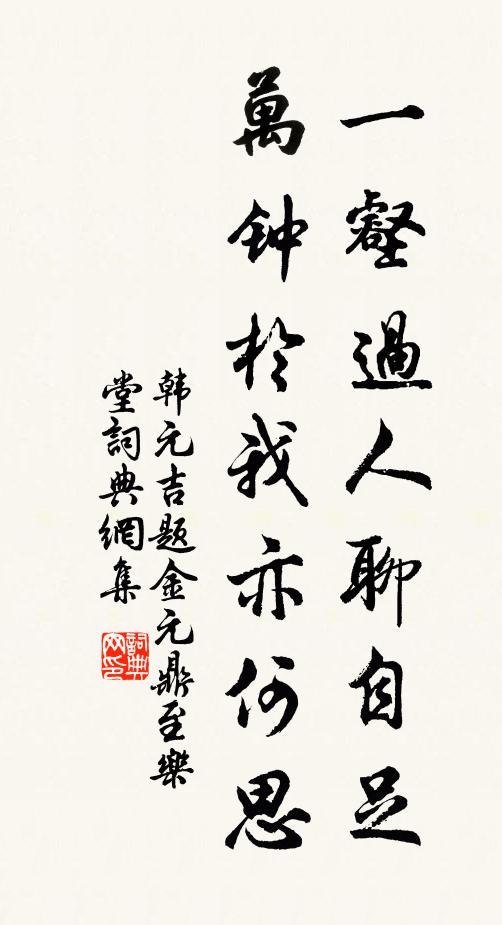 一壑過人聊自足
萬钟於我亦何思
韩元吉题金元鼎至樂
堂詞典網集
詞典
网印